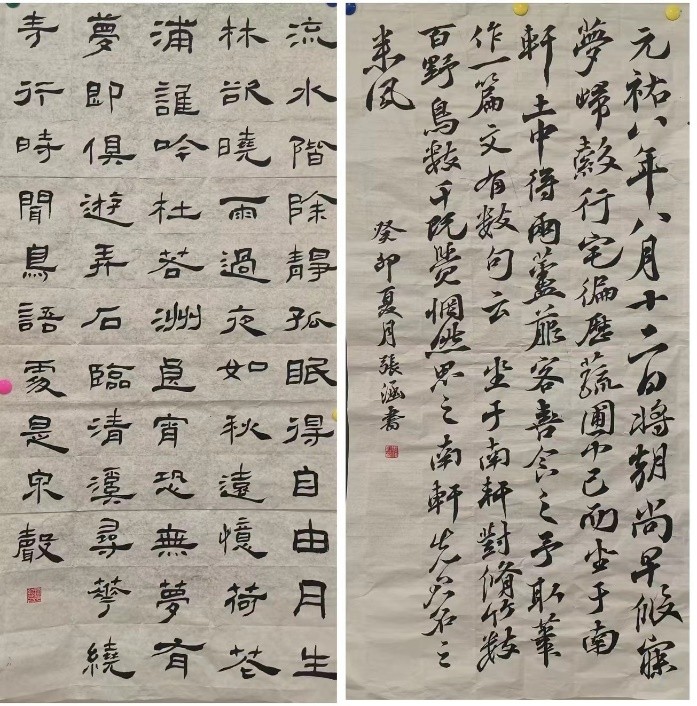 流水階除靜孤眠得自由月生
林欲曉雨過夜如秋遠憶荷花
浦誰吟杜若洲良宵恐無夢有
夢即俱遊弄石臨清溪尋華繞
寺行時聞鳥語處是泉聲
元祐八年八月十二日將朝尚早假寐
夢歸縠行宅徧歷蔬圃中已而坐于南
軒土中得兩蘆菔客喜食之予取筆
作一篇文有數句云坐于南軒對脩竹數
百野鳥數千既覺惘然思之南軒先君名之
來風
癸卯夏月張涵書